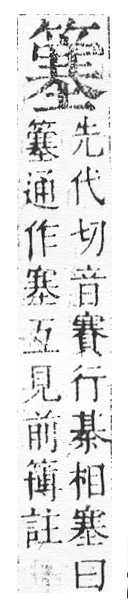 簺
先代切音賽行棊相塞曰
簺通作塞互見前簙註